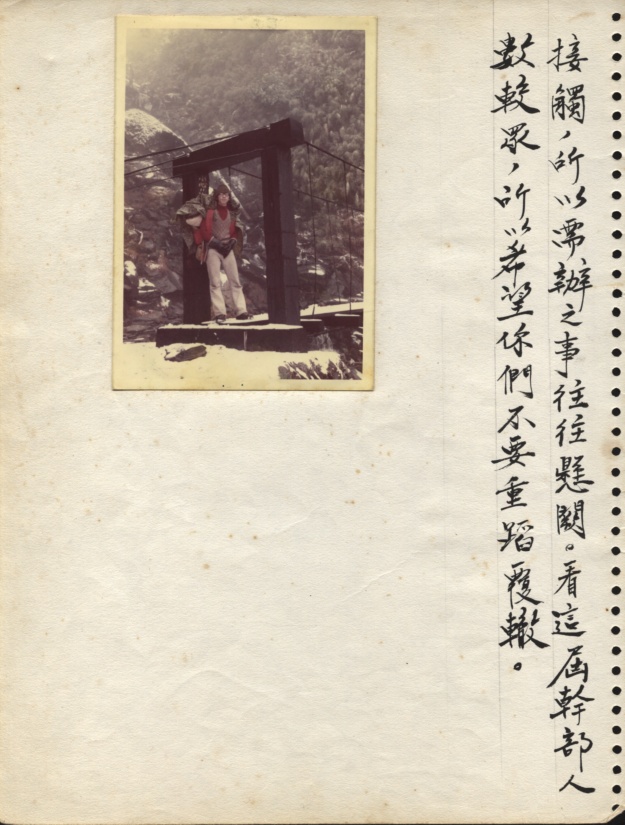 接觸，所以需辦之事往往懸闕。看這屆幹部人
數較眾，所以希望你們不要重蹈覆轍。